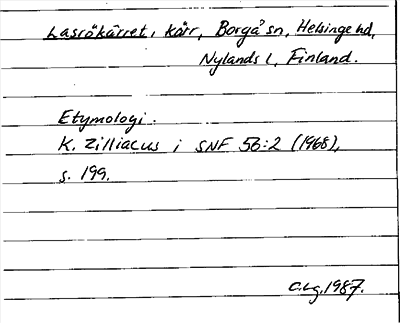 Lasrökärret, kärr, Borgå sn, Helsinge hd,
Nylands l, Finland.
Etymologi.
K. Zilliacus i SNF 56:2 (1968),
s. 199.
C.Lg. 1987.